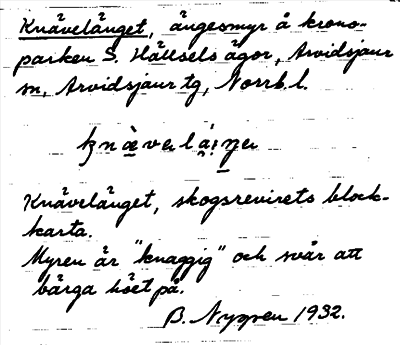 Knävelänget, ängesmyr å krono-
parken S. Hällsels ägor, Arvidsjaur
sn, Arvidsjaur tg, Norrb. l.
Knävelänget, skogsrevirets block-
karta.
Myren är "knaggig" och svår att
bärga höet på.
B. Nygren 1932.